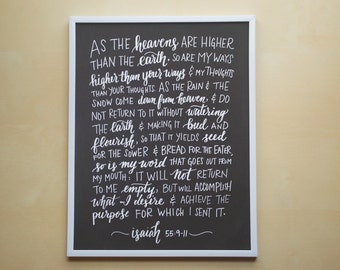 AS THE heavens ARE HIGHER
THAN THE earth, SO ARE MY WAYS
higher than your ways & MY THOUGHTS
THAN YOUR THOUGHTS. AS THE RAIN & THE
SNOW COME down from heaven, & DO
NOT RETURN TO IT WITHOUT watering
the earth & MAKING IT bud AND
flourish, SO THAT IT YIELDS seed
FOR THE SOWER & BREAD FOR THE EATER,
so is my word THAT GOES OUT FROM
MY MOUTH: IT WILL NOT RETURN
TO ME empty, BUT WILL ACCOMPLISH
what I desire & ACHIEVE THE
purpose FOR WHICH I SENT IT.
isaiah 55:9-11